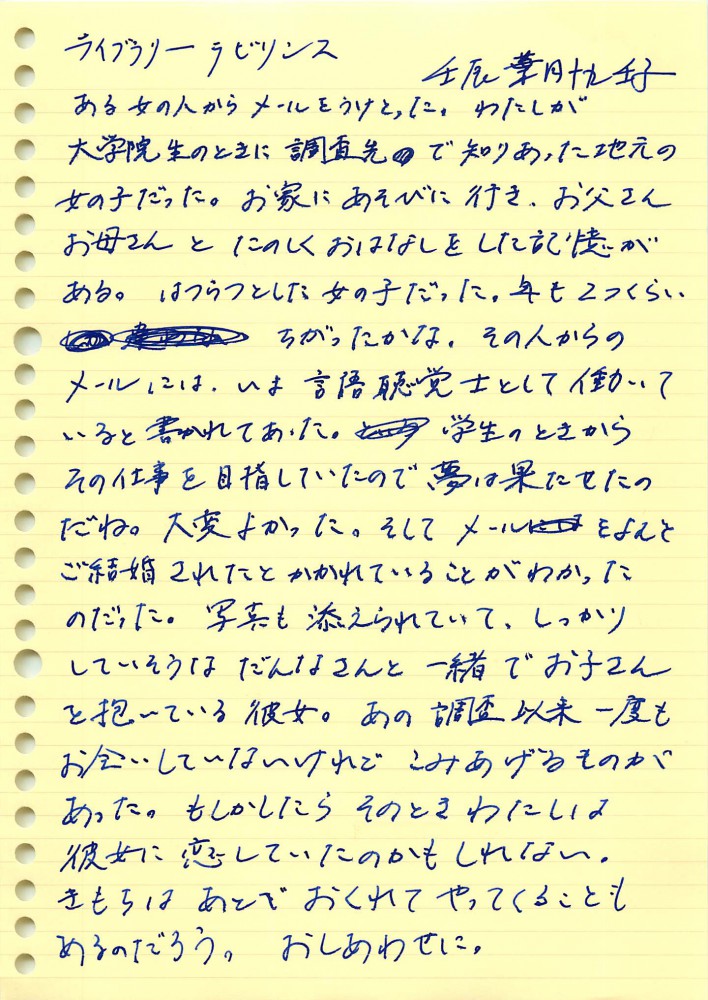 ライブラリー ラビリンス
壬辰 葉月十九 壬子
ある女の人からメールをうけとった。わたしが
大学院生のときに調査先で知りあった地元の
女の子だった。お家にあそびに行き、お父さん
お母さんとたのしくおはなしをした記憶が
ある。はつらつとした女の子だった。年も2つくらい
ちがったかな。その人からの
メールには、いま言語聴覚士として働いて
いると書かれてあった。学生のときから
その仕事を目指していたので夢は果たせたの
だね。大変よかった。そしてメールをよむと
ご結婚されたとかかれていることがわかった
のだった。写真も添えられていて、しっかり
していそうなだんなさんと一緒でお子さん
を抱いている彼女。あの調査以来一度も
お会いしていないけれどこみあげるものが
あった。もしかしたらそのときわたしは
彼女に恋していたのかもしれない。
きもちはあとでおくれてやってくることも
あるのだろう。おしあわせに。